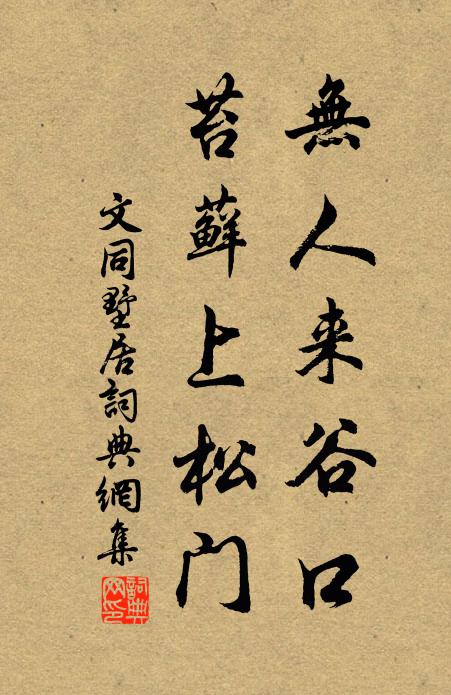 無人来谷口
苔蘚上松门
文同墅居詞典網集
詞典网印